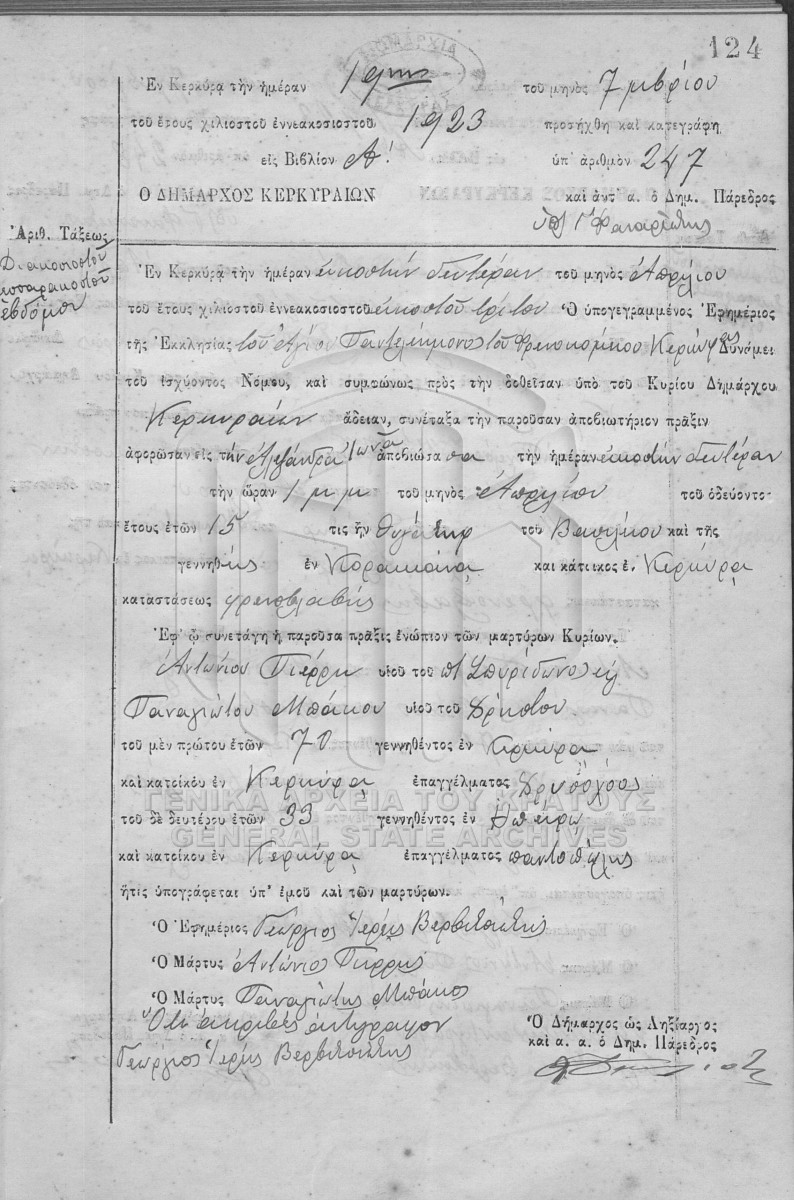 124
ΔΗΜΑΡΧΙΑ
Ἐν Κερκύρᾳ τὴν ἡμέραν 19ης τοῦ μηνὸς 7μβρίου
τοῦ ἔτους χιλιοστοῦ ἐννεακοσιοστοῦ 1923 προσήχθη καὶ κατεγράφη
εἰς Βιβλίον Α! ὑπ' ἀριθμὸν 247
Ο ΔΗΜΑΡΧΟΣ ΚΕΡΚΥΡΑΙΩΝ καὶ ἀντ' α. ὁ Δημ. Πάρεδρος
Ἀριθ. Τάξεως
Διακοσιοστοῦ
τεσσαρακοστοῦ
ἑβδόμου
Ἐν Κερκύρᾳ τὴν ἡμέραν εἰκοστὴν δευτέραν τοῦ μηνὸς Ἀπριλίου
τοῦ ἔτους χιλιοστοῦ ἐννεακοσιοστοῦ εἰκοστοῦ τρίτου Ὁ ὑπογεγραμμένος Ἐφημέριος
τῆς Ἐκκλησίας τοῦ Ἁγίου Παντελεήμονος τοῦ Φρενοκομείου Κερκύρας Δυνάμει
τοῦ ἰσχύοντος Νόμου, καὶ συμφώνως πρὸς τὴν δοθεῖσαν ὑπὸ τοῦ Κυρίου Δημάρχου
Κερκυραίων ἄδειαν, συνέταξα τὴν παροῦσαν ἀποβιωτήριον πρᾶξιν
ἀφορῶσαν εἰς τὴν Ἀλεξάνδρα ἀποβιώσασα τὴν ἡμέραν εἰκοστὴν δευτέραν
τὴν ὥραν 1 μμ τοῦ μηνὸς Ἀπριλίου τοῦ ὁδεύοντο
ἔτους ἐτῶν 15 τις ἦν θυγάτηρ τοῦ Βασιλείου καὶ τῆς
γεννηθείς ἐν Κορακιάνᾳ καὶ κάτοικος ἐν Κερκύρᾳ
καταστάσεως φρενοβλαβής
Ἐφ' ᾧ συνετάγη ἡ παροῦσα πρᾶξις ἐνώπιον τῶν μαρτύρων Κυρίων.
Ἀντωνίου Πιέρρη υἱοῦ τοῦ π. Σπυρίδωνος καὶ
Παναγιώτου Μπάκου υἱοῦ τοῦ Χρήστου
τοῦ μὲν πρώτου ἐτῶν 70 γεννηθέντος ἐν Κερκύρᾳ
καὶ κατοίκου ἐν Κερκύρᾳ ἐπαγγέλματος
ΓΕΝΙΚΑ ΑΡΧΕΙΑ ΤΟΥ ΚΡΑΤΟΥΣ
GENERAL STATE ARCHIVES
τοῦ δὲ δευτέρου ἐτῶν 33 γεννηθέντος ἐν Ἠπείρῳ
καὶ κατοίκου ἐν Κερκύρᾳ ἐπαγγέλματος παντοπώλης
ἥτις ὑπογράφεται ὑπ' ἐμοῦ καὶ τῶν μαρτύρων.
Ὁ Ἐφημέριος Γεώργιος Ἱερεὺς Βερβιτσιώτης
Ὁ Μάρτυς Ἀντώνιος Πιέρρης
Ὁ Μάρτυς Παναγιώτης Μπάκος
Ὅτι ἀκριβὲς ἀντίγραφον
Γεώργιος Ἱερεὺς Βερβιτσιώτης
Ὁ Δήμαρχος ὡς Ληξίαρχος
καὶ α. α. ὁ Δημ. Πάρεδρος